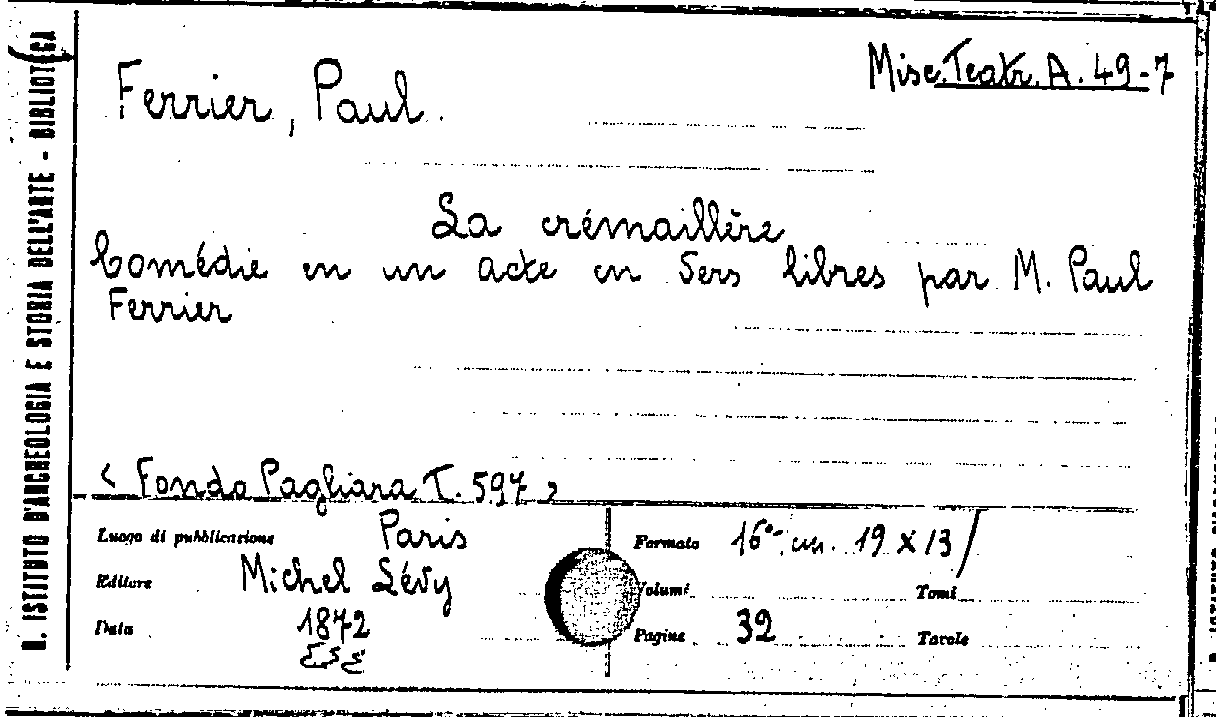 R. ISTITUTO D'ARCHEOLOGIA E STORIA DELL'ARTE - BIBLIOTECA
Misc. Teatr. A. 49-7
Ferrier, Paul.
La crémaillère
Comédie en un acte en vers libres par M. Paul
Ferrier
< Fondo Pagliara T. 597 >
Luogo di pubblicazione Paris
Formato 16° cm. 19 x 13
Editore Michel Lévy
Volumi Tomi
Data 1872
Pagine 32 Tavole